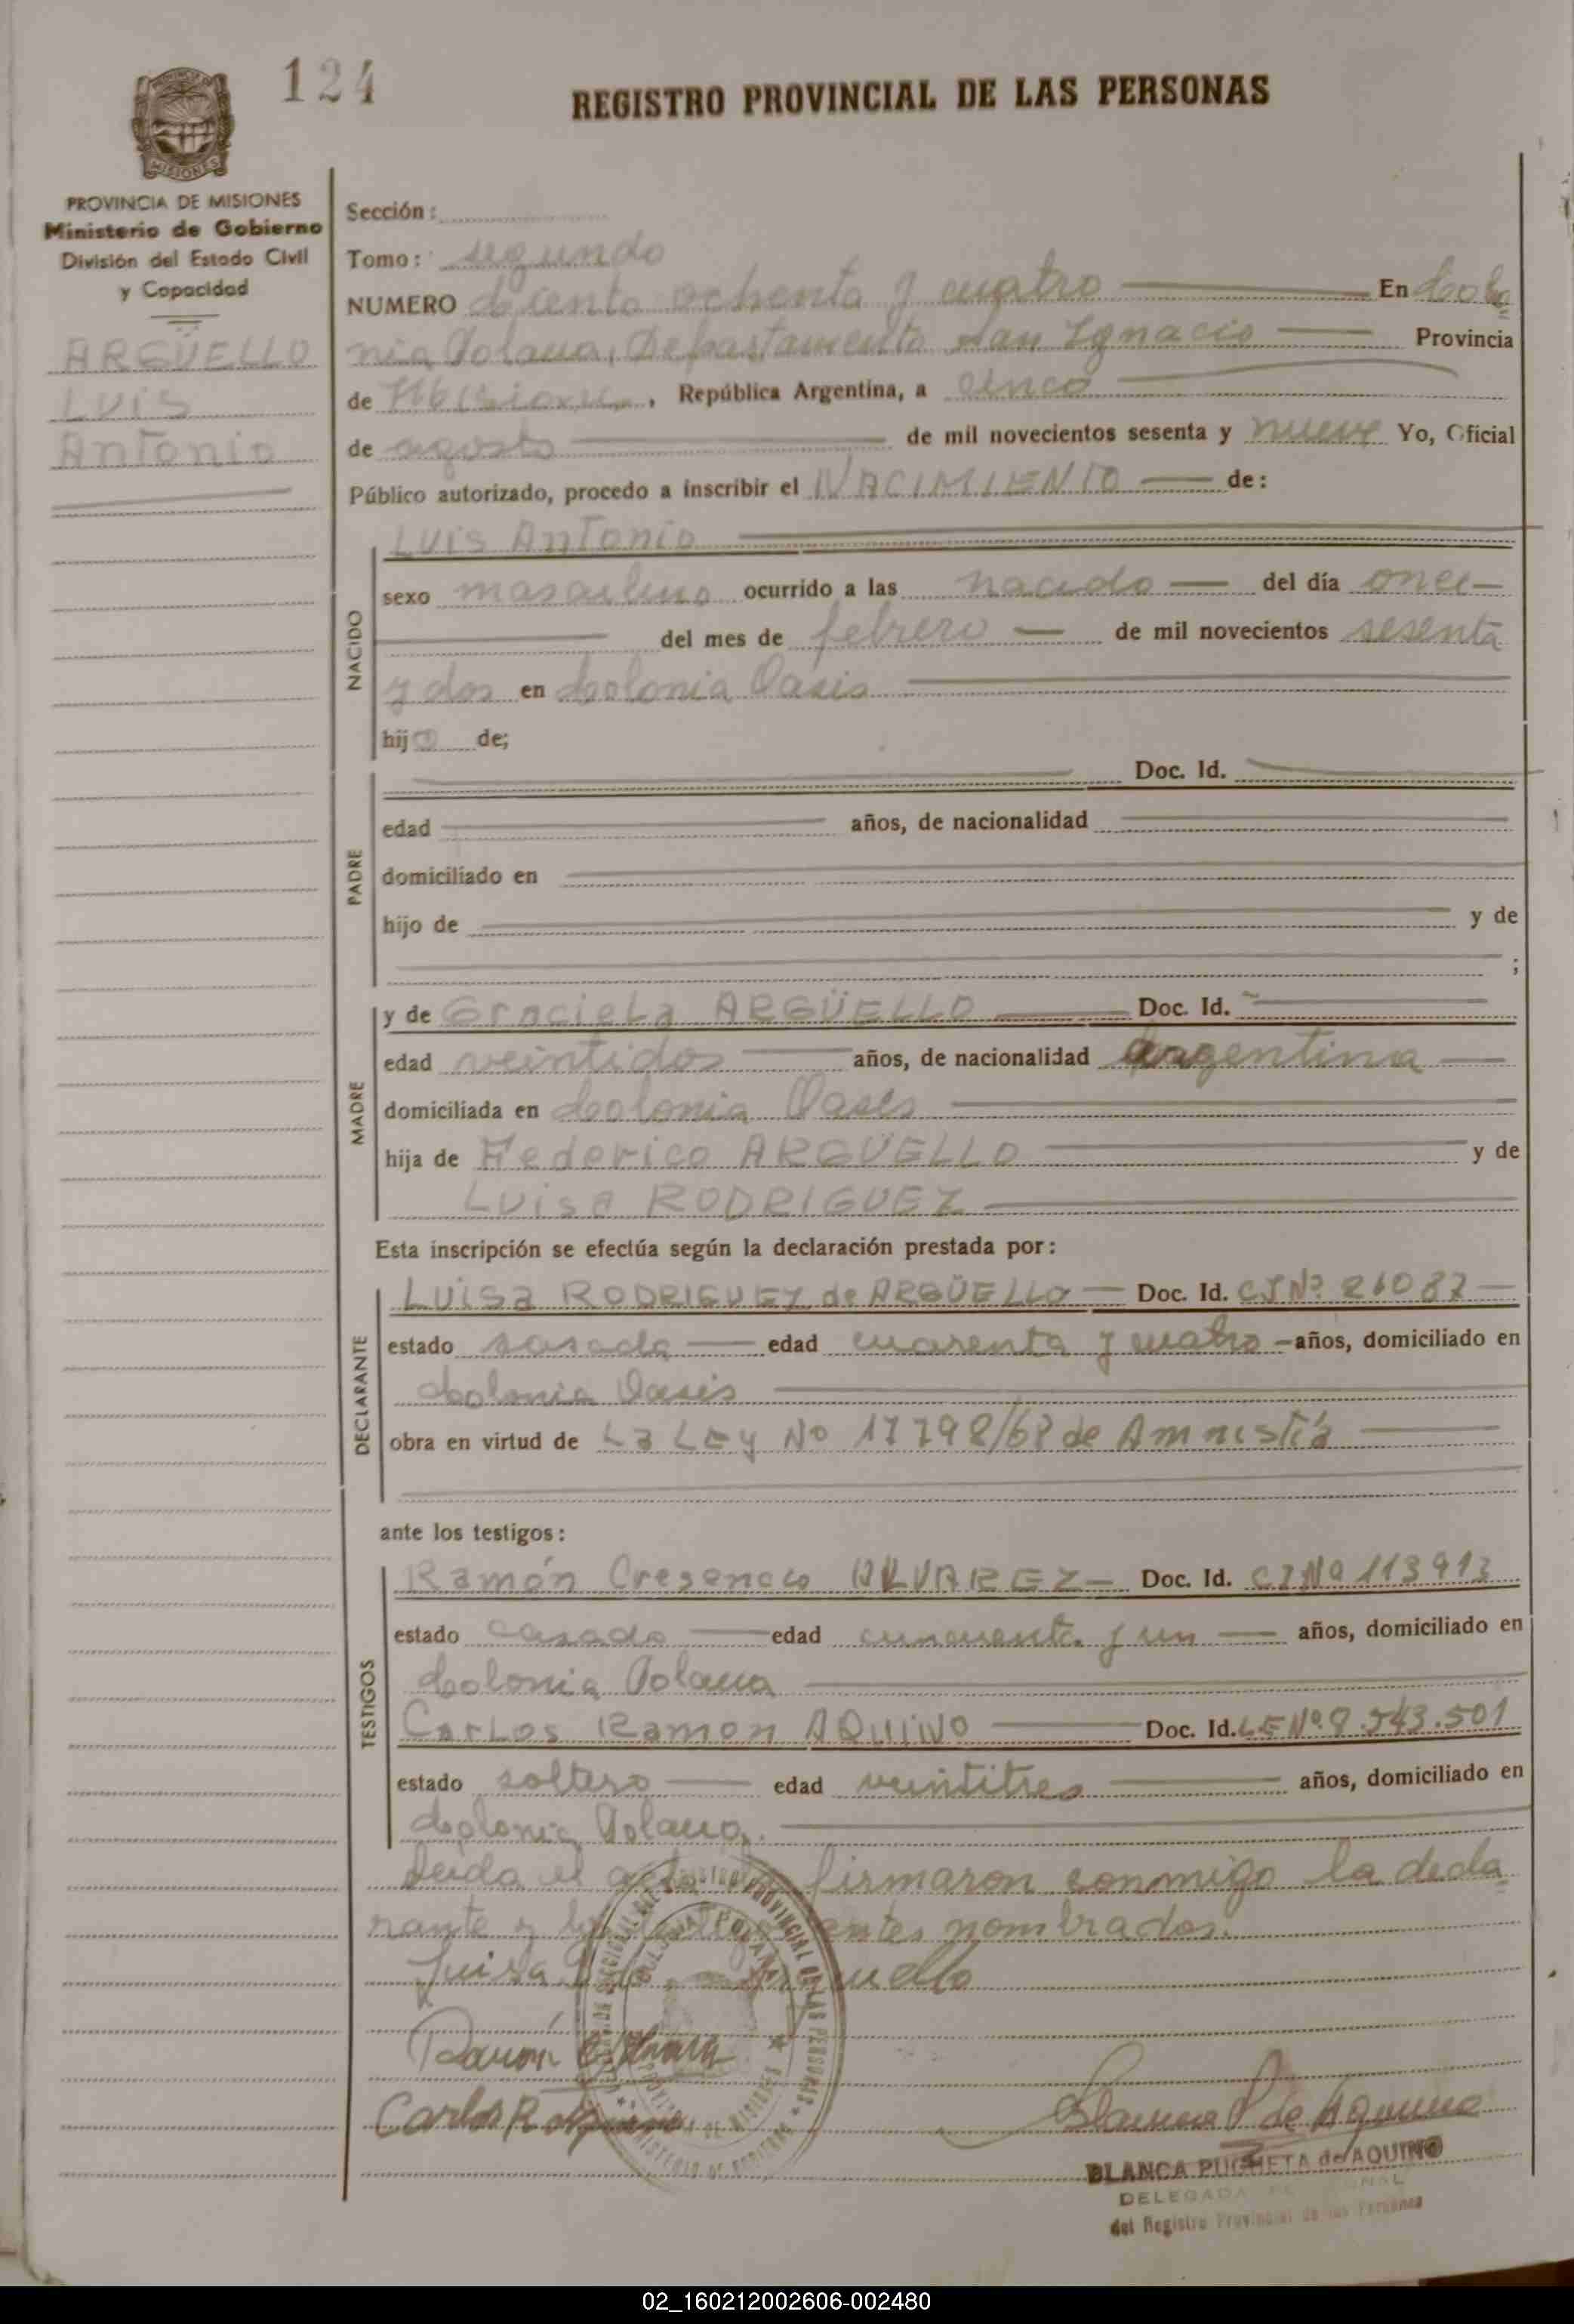 124
REGISTRO PROVINCIAL DE LAS PERSONAS
MISIONES
PROVINCIA DE MISIONES
Ministerio de Gobierno
División del Estado Civil
y Capacidad
ARGÜELLO
Luis
Antonio
Sección:
Tomo: segundo
NUMERO Ciento ochenta y cuatro En Colo
nia Polana, Departamento San Ignacio Provincia
de Misiones, República Argentina, a cinco
de agosto de mil novecientos sesenta y nueve Yo, Oficial
Público autorizado, procedo a inscribir el NACIMIENTO de:
NACIDO
Luis Antonio
sexo masculino ocurrido a las nacido del día once
del mes de febrero de mil novecientos sesenta
y dos en Colonia Oasis
hijo de;
PADRE
Doc. Id.
edad años, de nacionalidad
domiciliado en
hijo de y de
;
MADRE
y de Graciela ARGÜELLO Doc. Id.
edad veintidos años, de nacionalidad argentina
domiciliada en Colonia Oasis
hija de Federico ARGÜELLO y de
Luisa RODRIGUEZ
Esta inscripción se efectúa según la declaración prestada por:
DECLARANTE
Luisa RODRIGUEZ de ARGÜELLO Doc. Id. CI Nº 26087
estado casada edad cuarenta y cuatro años, domiciliado en
Colonia Oasis
obra en virtud de La Ley Nº 17798/68 de Amnistía
ante los testigos:
TESTIGOS
Ramón Cresencio ALVAREZ Doc. Id. CI Nº 113913
estado casado edad cincuenta y un años, domiciliado en
Colonia Polana
Carlos Ramon AQUINO Doc. Id. LE Nº 8.543.501
estado soltero edad veintitres años, domiciliado en
Colonia Polana.
Leida el acta la firmaron conmigo la decla
rante y los testigos antes nombrados.
Luisa Arguello
Ramón C Alvarez
Carlos R Aquino
Blanca P de Aquino
BLANCA PUCHETA de AQUINO
DELEGADA
del Registro Provincial de las Personas
02_160212002606-002480